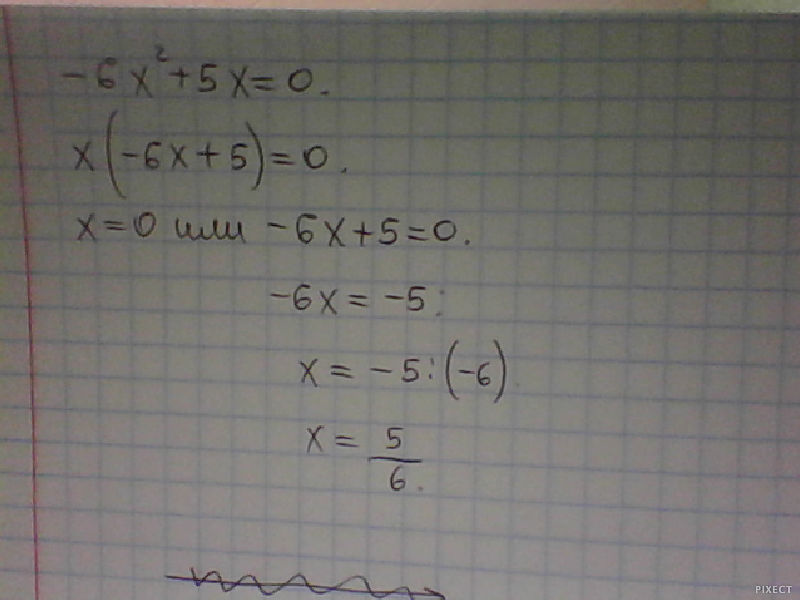 -6x²+5x=0.
x(-6x+5)=0.
x=0 или -6x+5=0.
-6x=-5:
x=-5:(-6)
x=5/6.
PIXECT